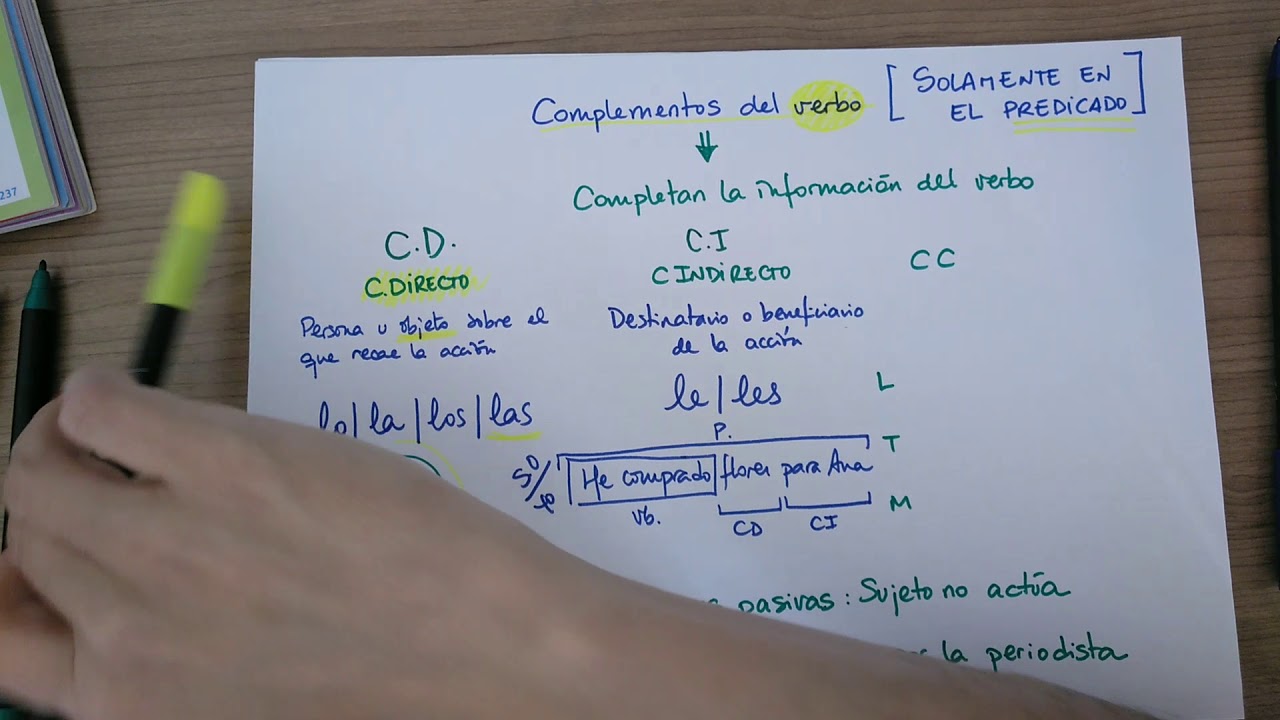 237
Complementos del verbo [SOLAMENTE EN
EL PREDICADO]
Completan la información del verbo
C.D.
C.DIRECTO
Persona u objeto sobre el
que recae la acción
lo|la|los|las
C.I
C INDIRECTO
Destinatario o beneficiario
de la acción
le|les
P.
He comprado flores para Ana
Vb.
CD
CI
CC
L
T
M
pasivas: Sujeto no actúa
la periodista